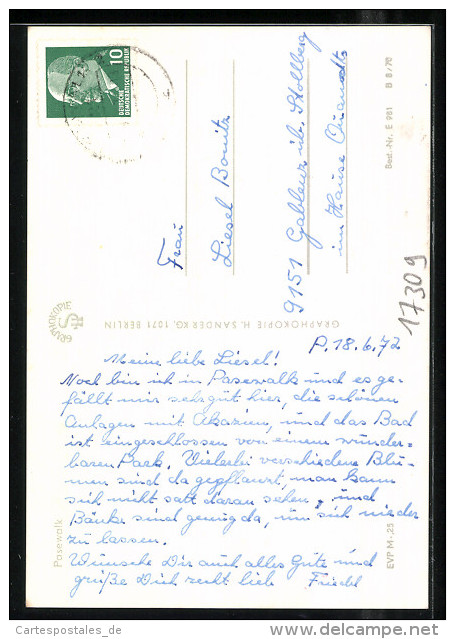 10
DEUTSCHE
DEMOKRATISCHE REPUBLIK
Frau
Liesel Bonitz
9151 Gablenz üb. Stollberg
im Hause Quandt
Best.-Nr. E 981 B 8/70
17309
GRAPHOKOPIE
GRAPHOKOPIE H. SANDER KG, 1071 BERLIN
P. 18.6.72
Meine liebe Liesel!
Noch bin ich in Pasewalk und es ge-
fällt mir sehr gut hier, die schönen
Anlagen mit Akazien, und das Bad
ist eingeschlossen von einem wunder-
baren Park. Vielerlei verschiedene Blu-
men sind da gepflanzt, man kann
sich nicht satt daran sehen, und
Bänke sind genug da, um sich nieder
zu lassen.
Wünsche Dir auch alles Gute und
grüße Dich recht lieb Friedel
Pasewalk
EVP M -,25
Cartespostales_de
http://www.delcampe.net